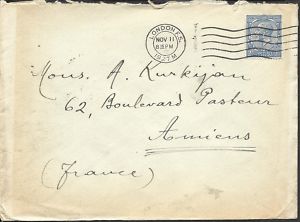 LONDON F.S.
NOV 11
8 15 PM
Mons. A. Kurkjian
62, Boulevard Pasteur
Amiens
(France)